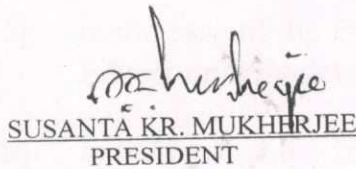 SUSANTA KR. MUKHERJEE
PRESIDENT